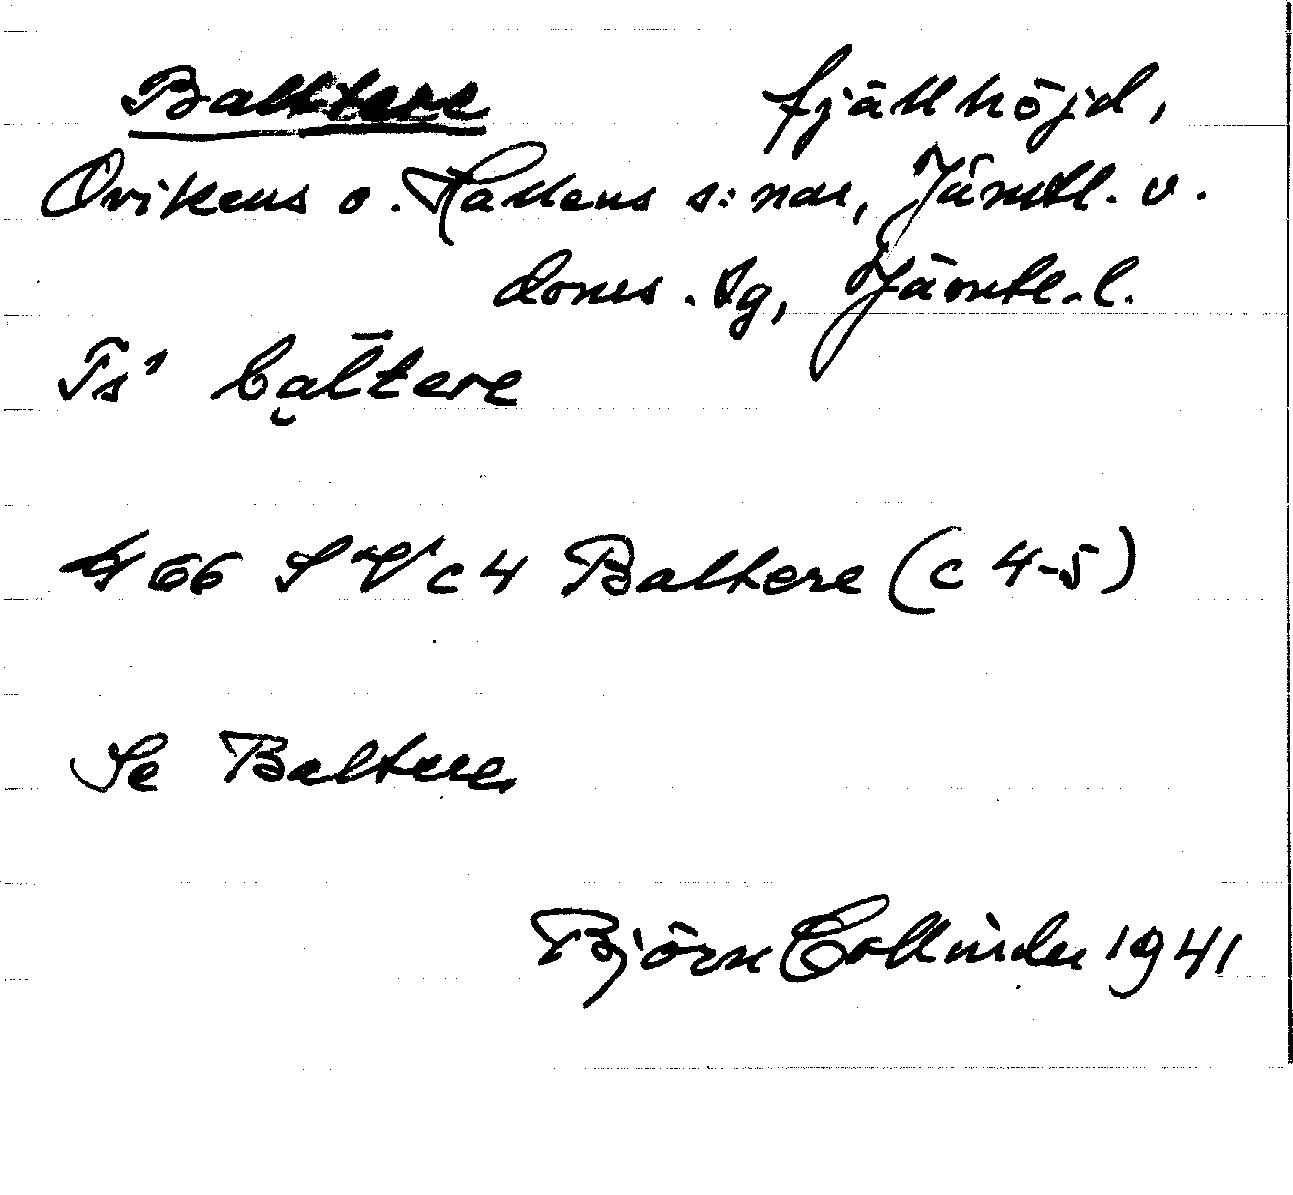 Balttere fjällhöjd,
Ovikens o. Hallens s:nar, Jämtl. v.
doms. tg, Jämtl. l.
Ts' bąl̄tere
466 SV c4 Baltere (c 4-5)
Se Baltere
Björn Collinder 1941